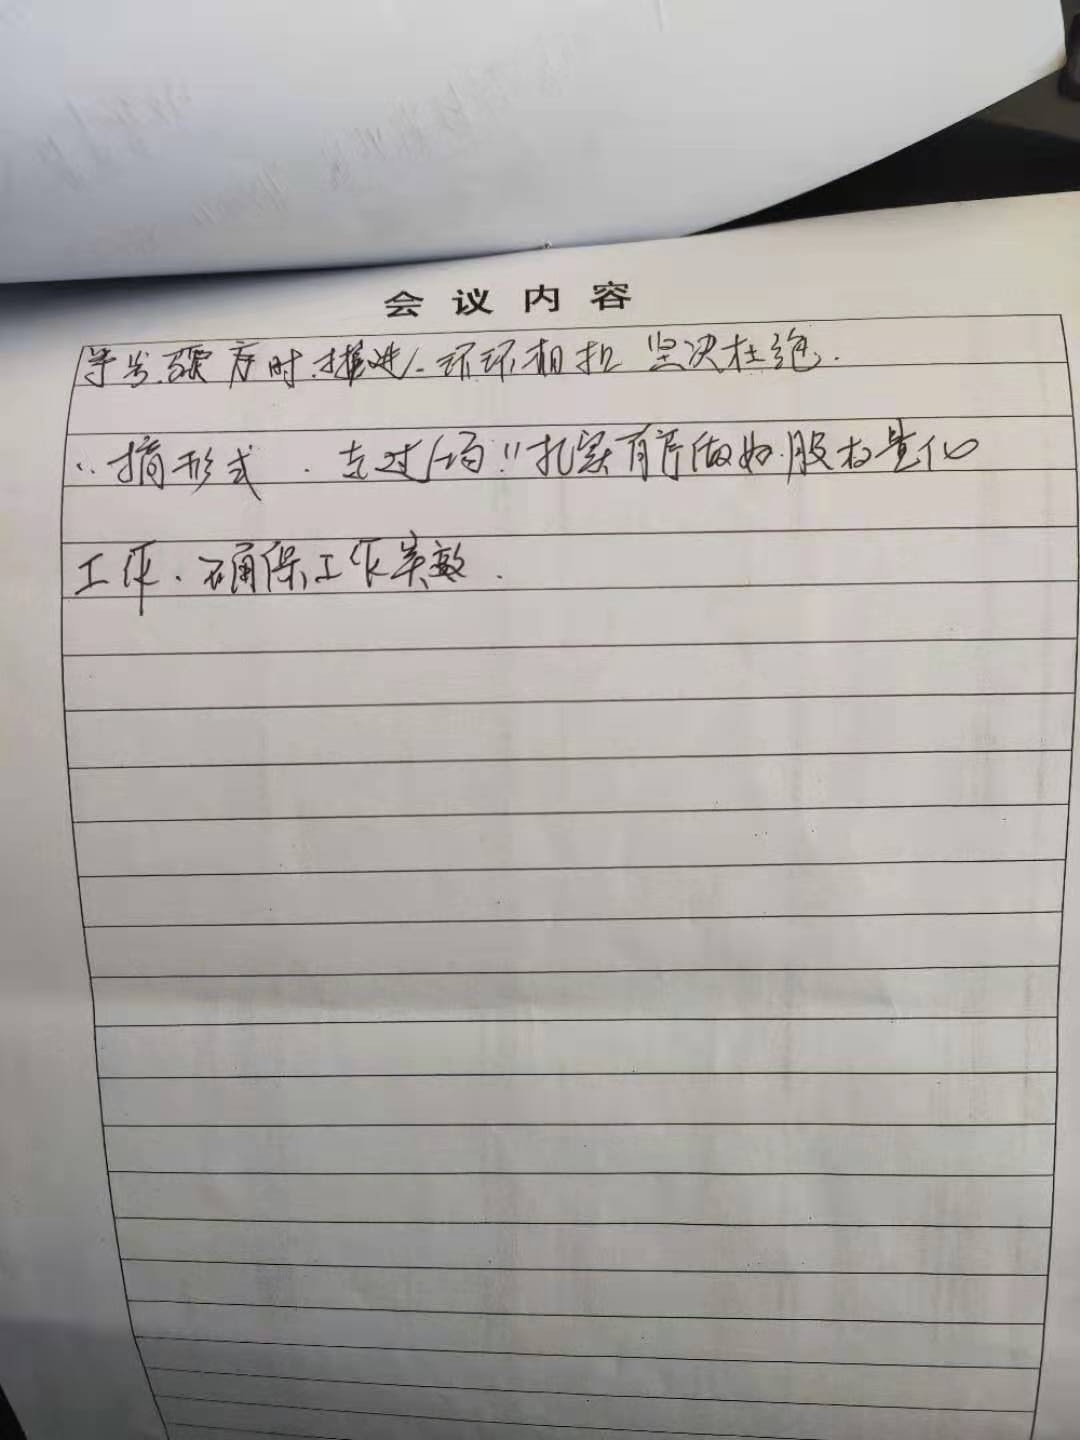 会议内容
步骤、序时推进、环环相扣 坚决杜绝.
"搞形式、走过场"扎实有序做好股权量化
工作、确保工作实效.